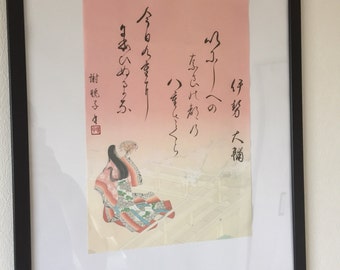 伊勢 大輔
いにしへの
奈良の都乃
八重さくら
今日九重に
匂ひぬるかな